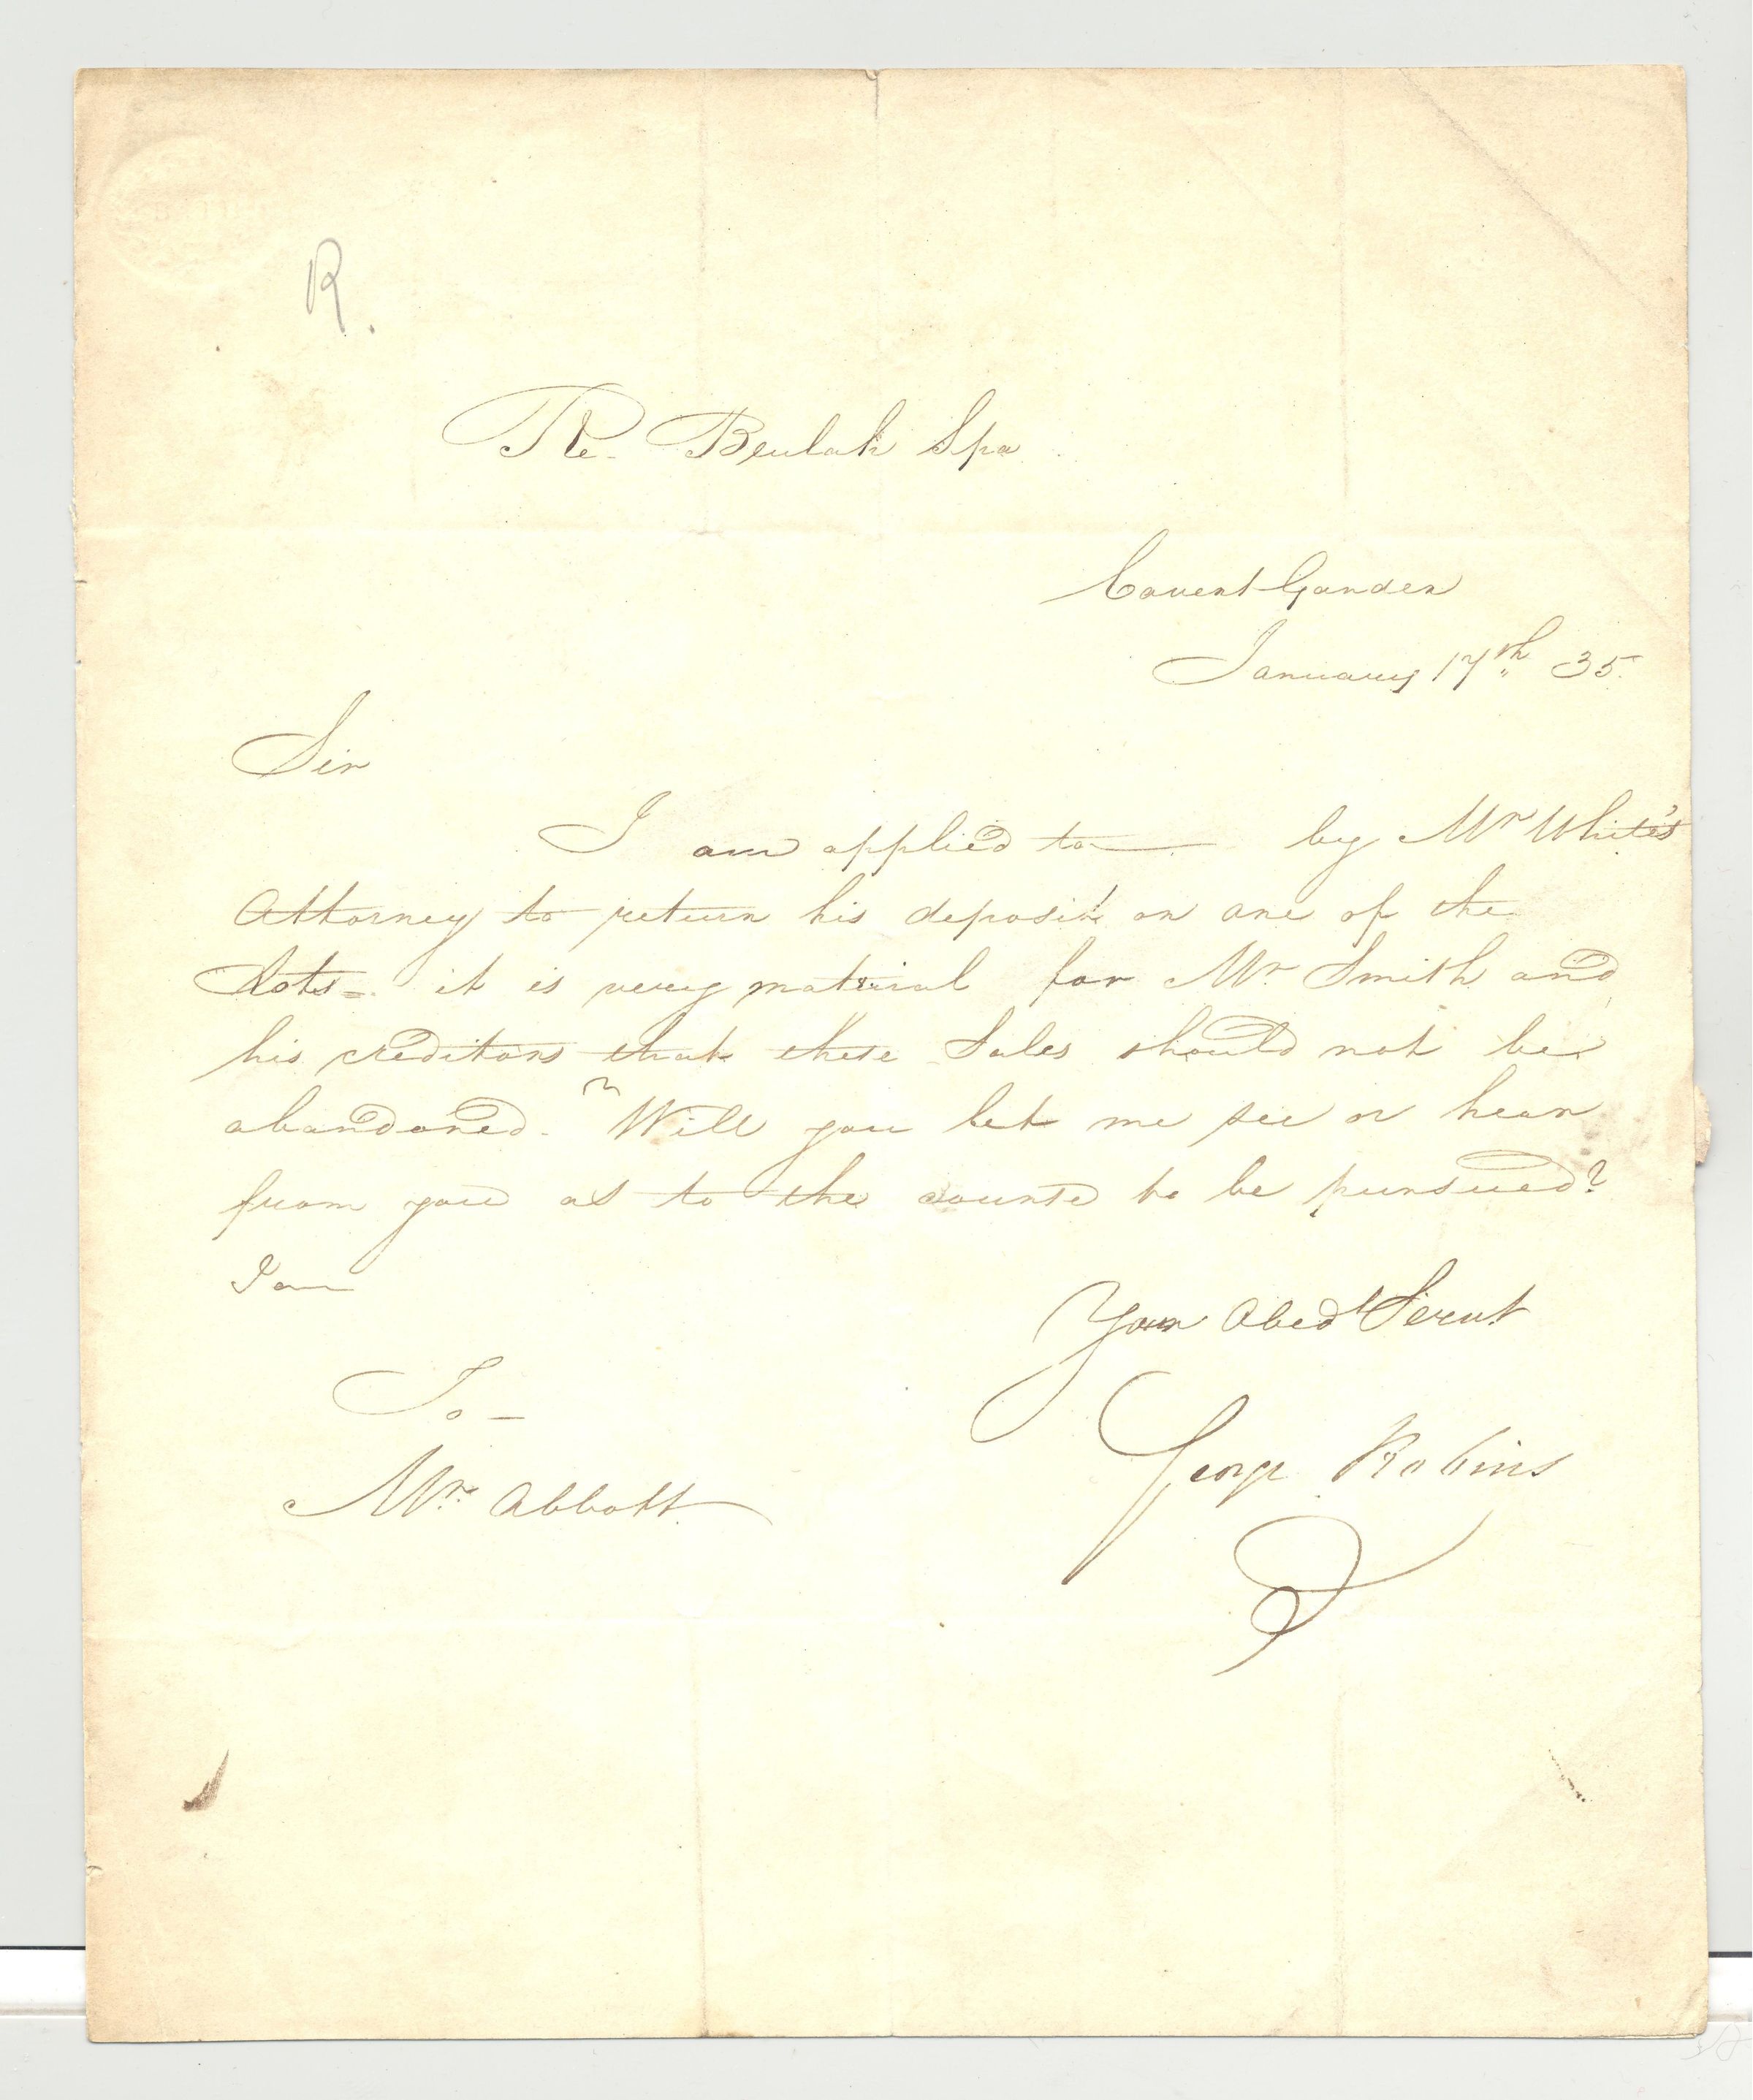 R.
Re. Beulah Spa
Covent Garden
January 17th 35.
Sir
I am applied to by Mr White's
Attorney to return his deposit on one of the
Lots = it is very material for Mr. Smith and
his creditors that these Sales should not be
abandoned. Will you let me see or hear
from you as to the course to be pursued?
I am
Your Obedt Servt
To -
George Robins
Mr. Abbott